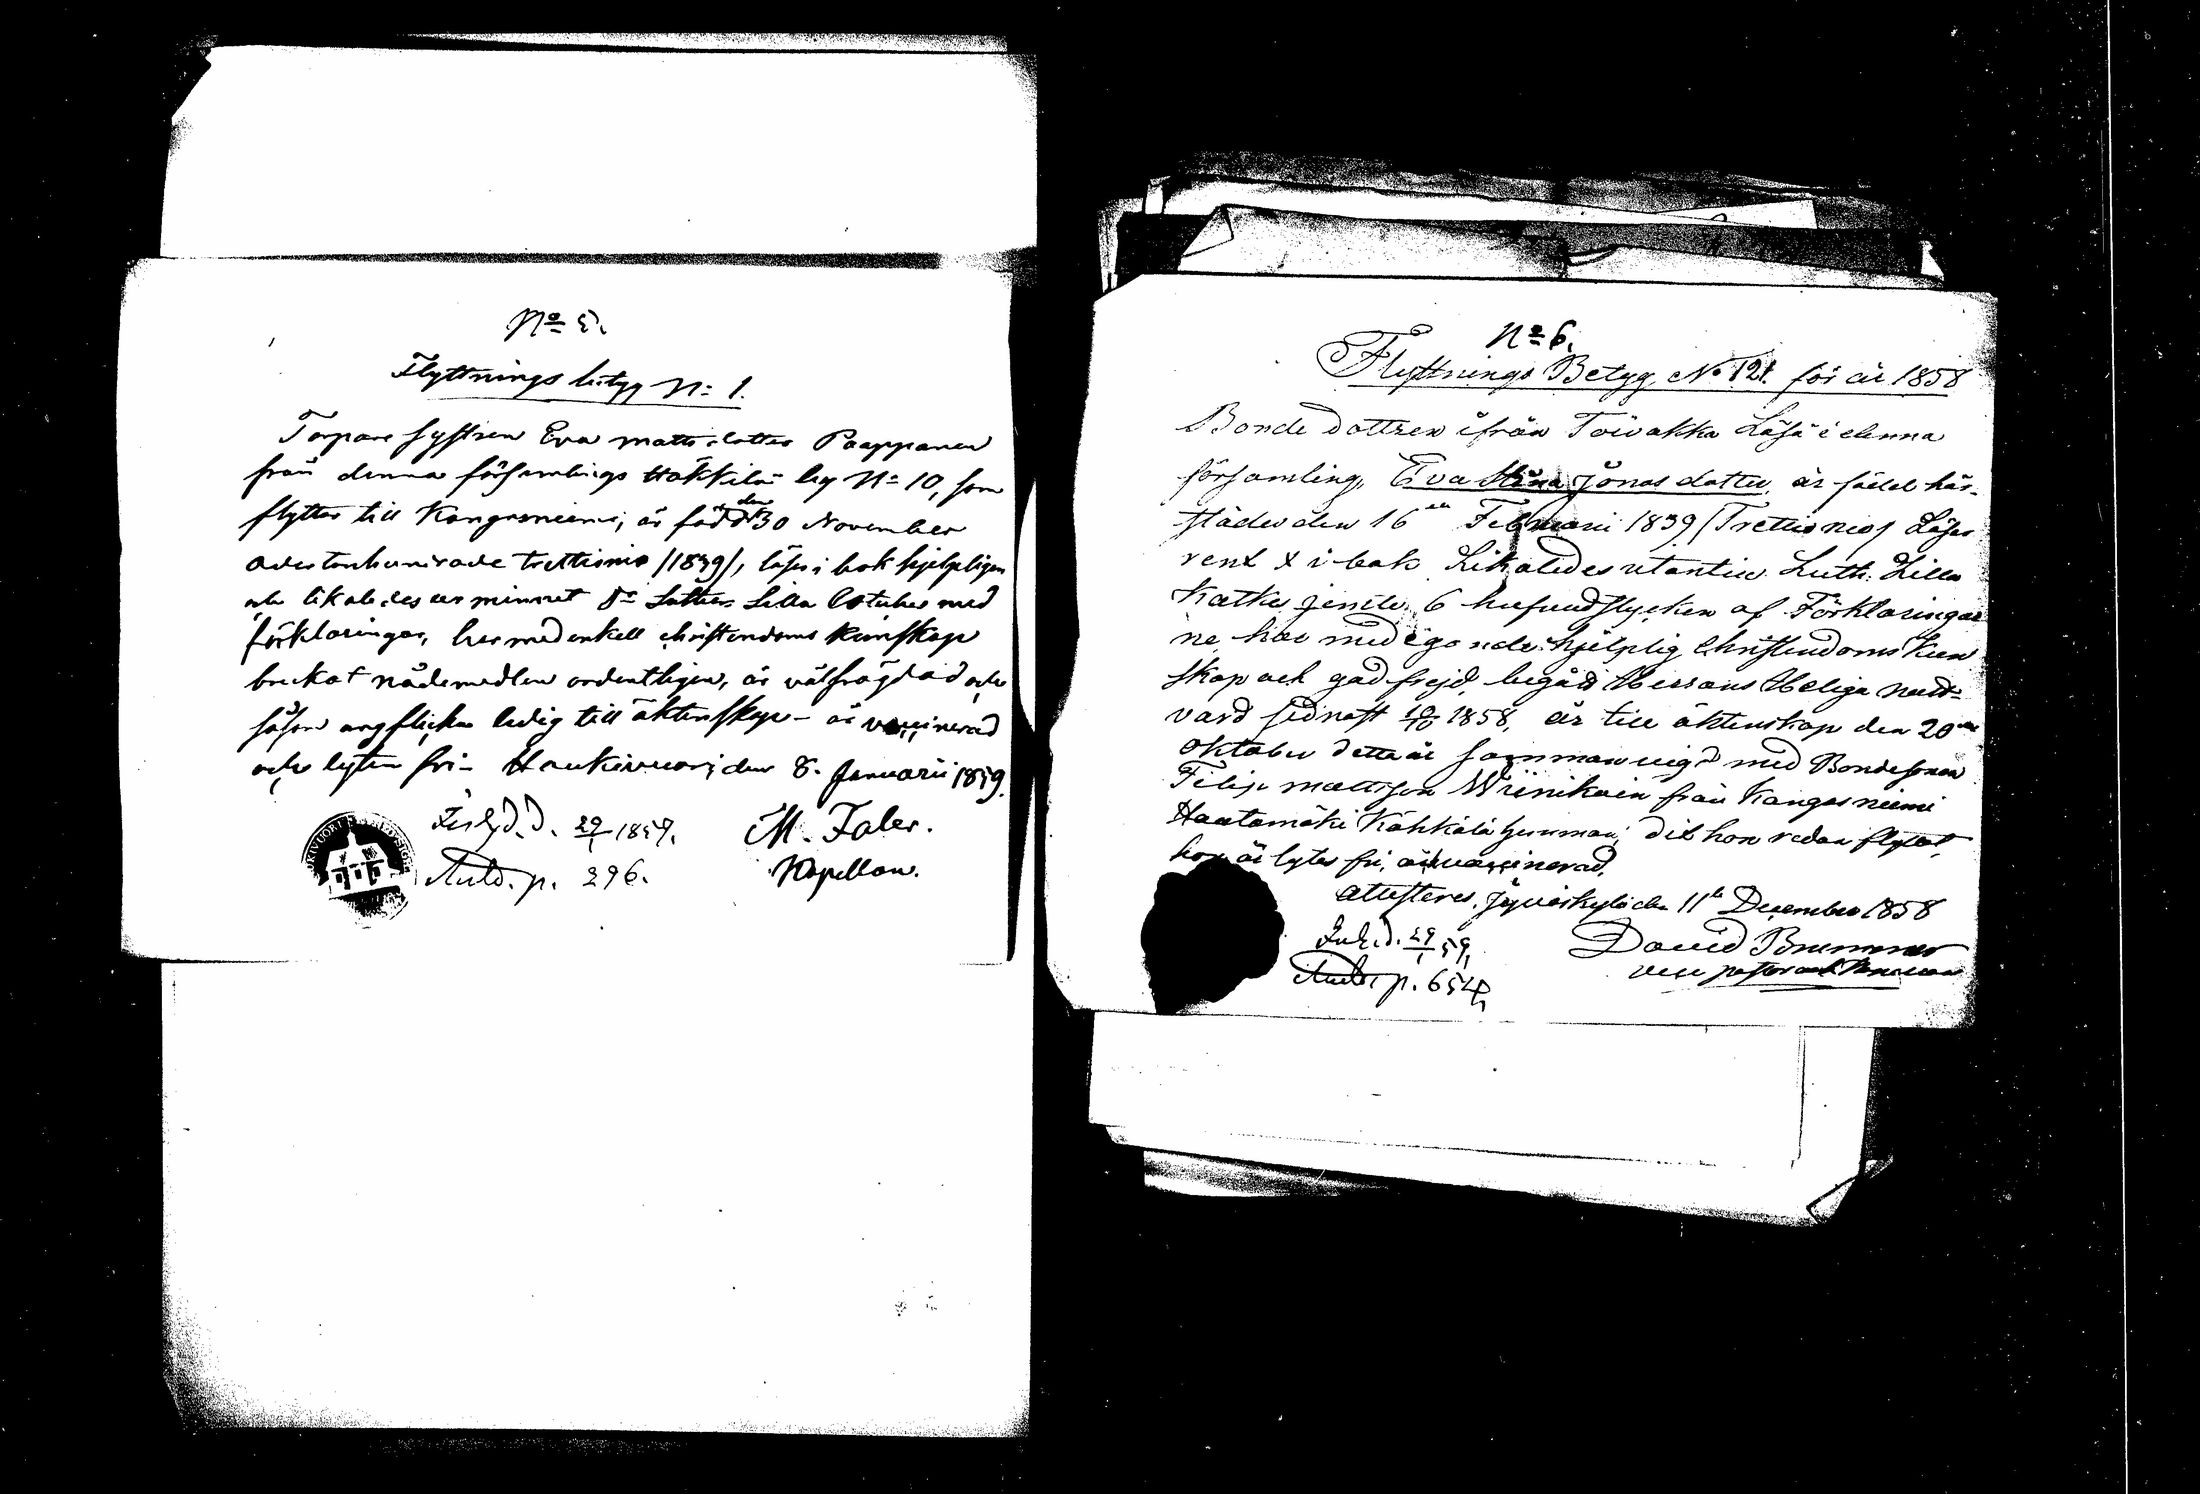 No 5.
Flyttnings betyg No 1.
Torpare systren Eva Matts dotter Paappanen
från denna församlings Häkkilä by No 10, som
flyttar till Kangasniemi, är född den 30 November
adertonhundrade trettionio /1839/, läser i bok hjelpligen
och likaledes ur minnet Dr Luthers Lilla Cateches med
förklaringar, har med enkell christendoms kunskap
brukat nådemedlen ordentligen, är välfrägdad och
såsom ungflicka ledig till äktenskap - är vaccinerad
och lyten fri - Haukivuori den 8. Januarii 1859.
Inl. d. 29/1 1859.
M. Faler.
Antd. p. 296.
Kapellan.
No 6.
Flyttnings Betyg No 121. för år 1858
Bonde dottren ifrån Toivakka Läsä i denna
församling, Eva Stina Jonas dotter, är född här-
städes den 16 Februari 1839 (Trettionio) Läser
rent i bok Likaledes utantill Luth: Lilla
Katkes jemte 6 hufvudstycken af Förklaringar
ne har med ägande hjelplig Christendoms kun
skap och god frejd, begått Herrans Heliga natt-
vard sednast 10/10 1858, är till äktenskap den 20
Oktober detta år sammanvigd med Bondesonen
Filip Mattsson Wiinikain från Kangasniemi
Hautamäki Kähkälä hemman, dit hon redan flytat,
hon är lytes fri, är vaccinerad.
attesteres, Jyväskylä den 11te December 1858
Inl. d. 29/1 59,
David Brummer
Antd. p. 654,
vice pastor